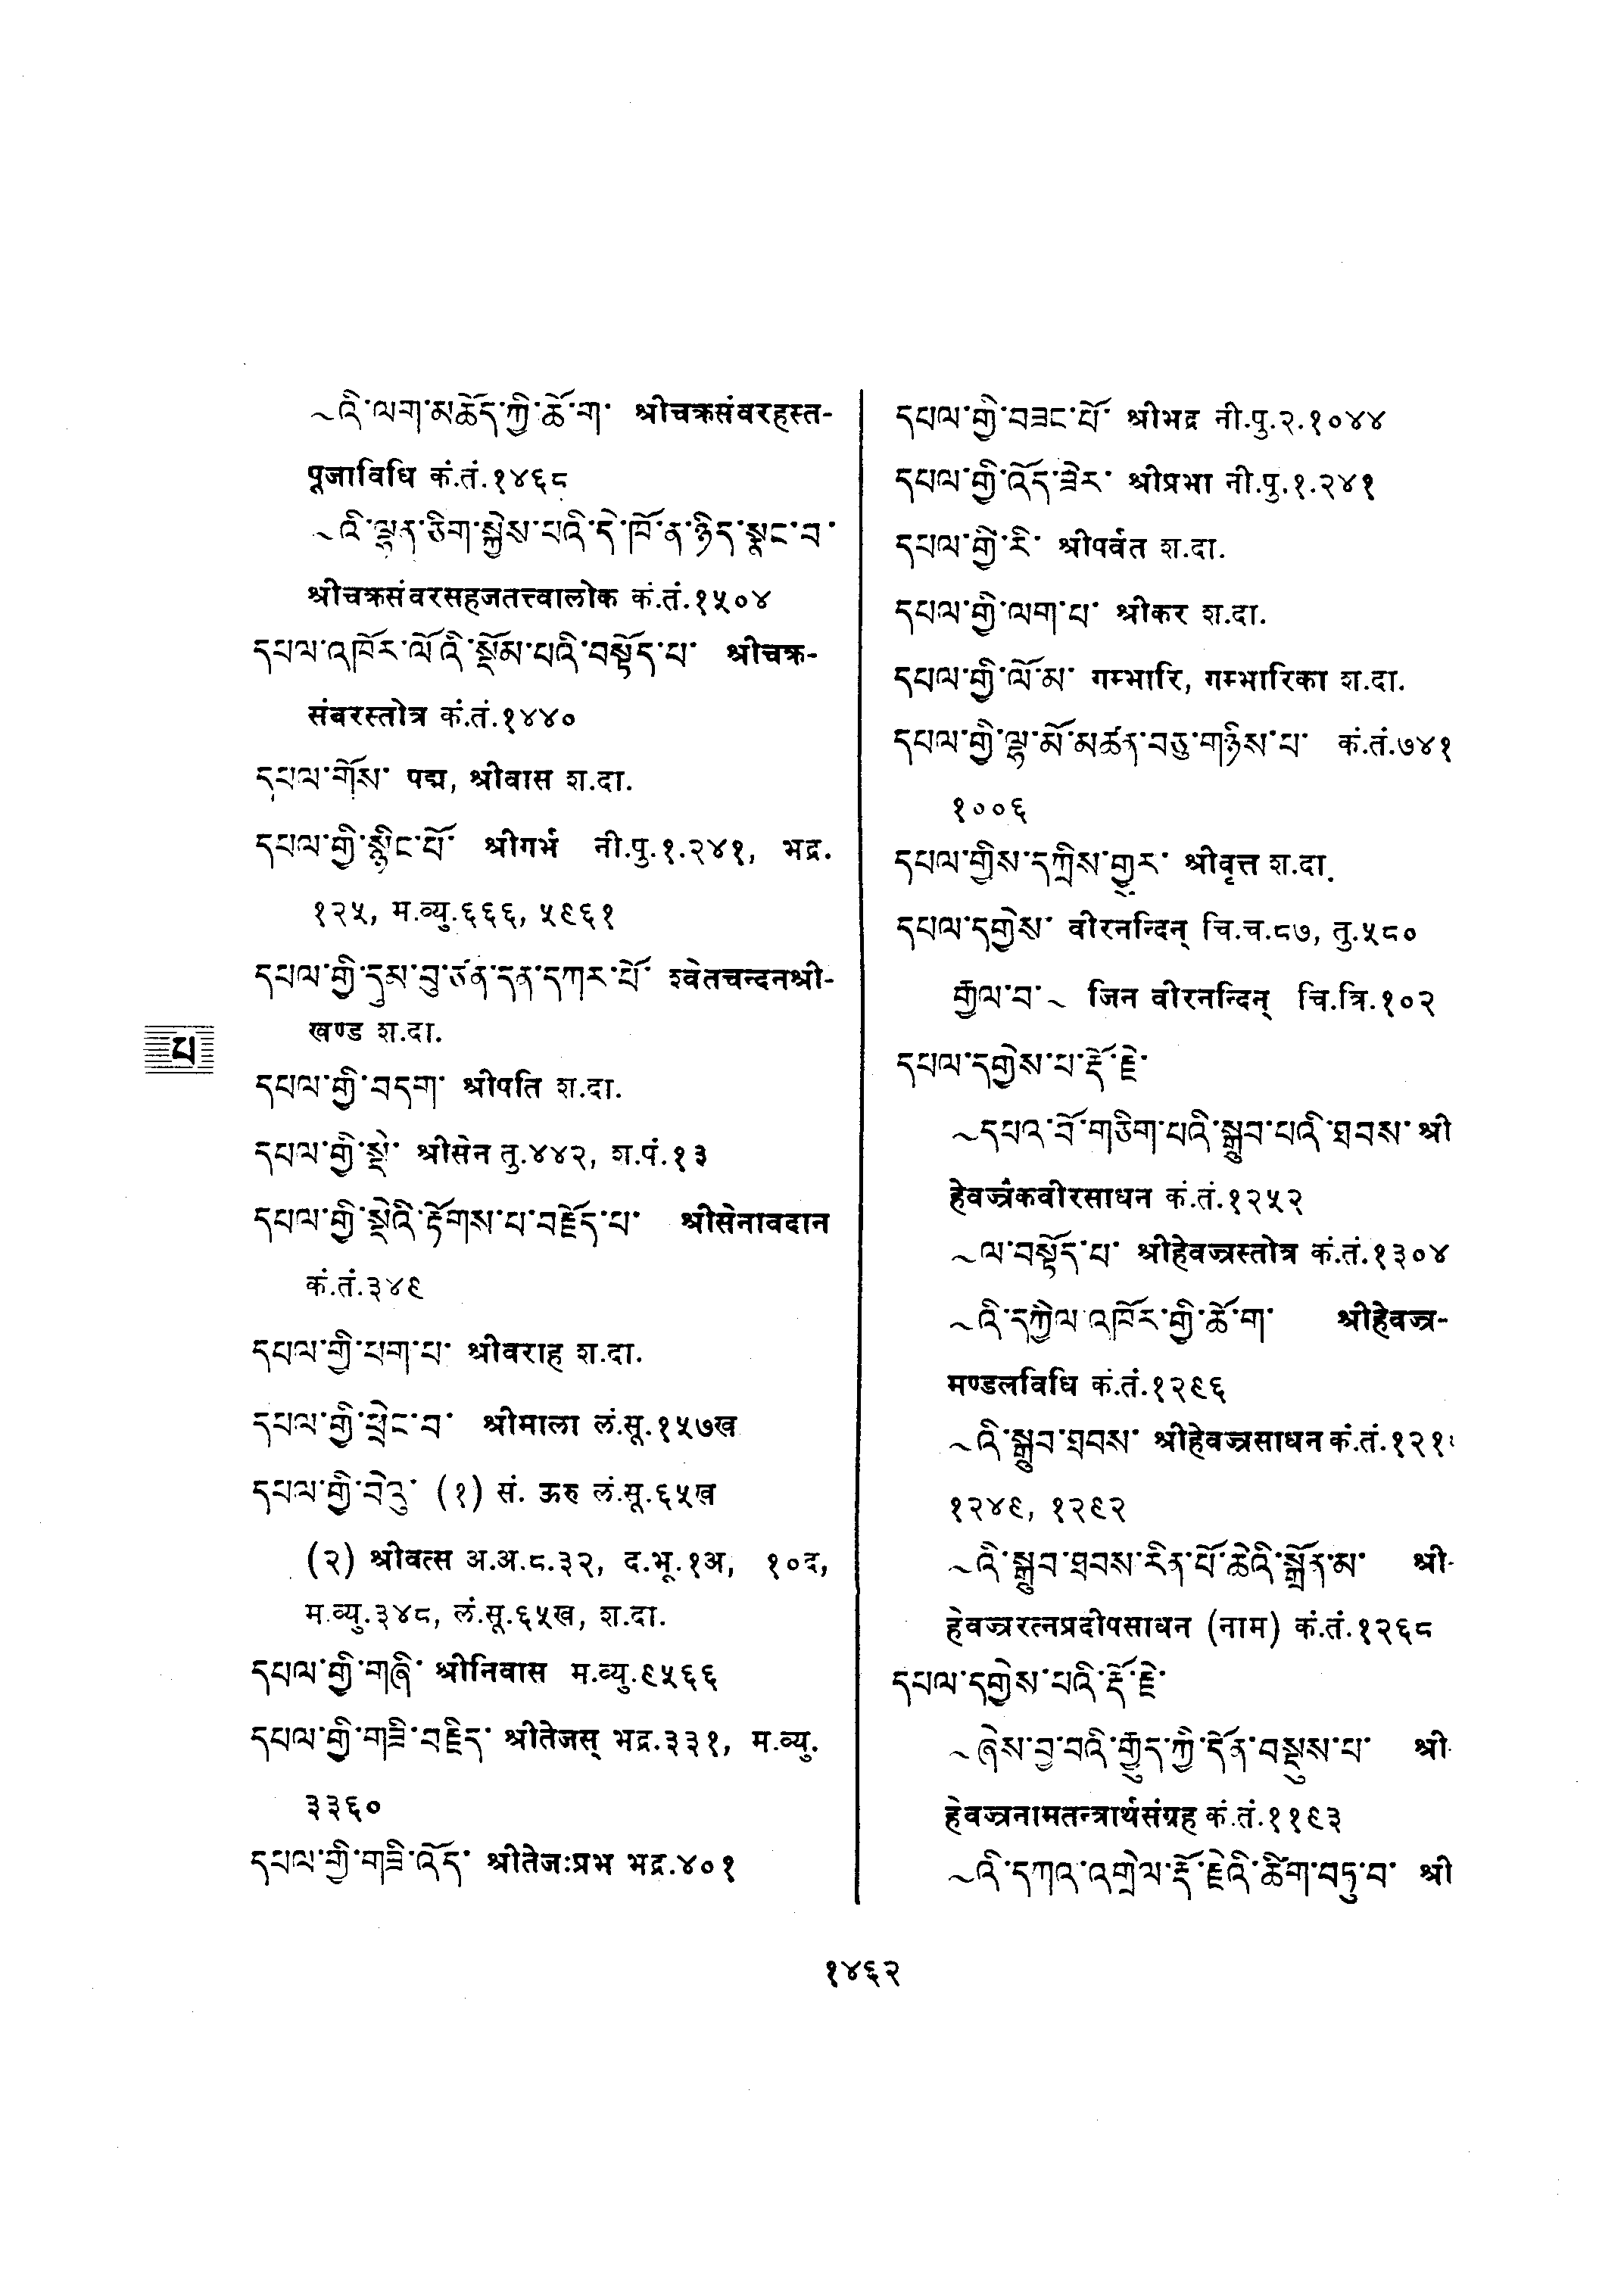 ~འི་ལག་མཆོད་ཀྱི་ཆོ་ག་ श्रीचक्रसंवरहस्त-
पूजाविधि कं.तं.१४६८
~འི་ལྷན་ཅིག་སྐྱེས་པའི་དེ་ཁོ་ན་ཉིད་སྣང་བ་
श्रीचक्रसंवरसहजतत्त्वालोक कं.तं.१५०४
དཔལ་འཁོར་ལོའི་སྡོམ་པའི་བསྟོད་པ་ श्रीचक्र-
संवरस्तोत्र कं.तं.१४४०
དཔལ་གོས་ पद्म, श्रीवास श.दा.
དཔལ་གྱི་སྙིང་པོ་ श्रीगर्भ नी.पु.१.२४१, भद्र.
१२५, म.व्यु.६६६, ५९६१
དཔལ་གྱི་དུམ་བུ་ཙན་དན་དཀར་པོ་ श्वेतचन्दनश्री-
खण्ड श.दा.
པ
དཔལ་གྱི་བདག་ श्रीपति श.दा.
དཔལ་གྱི་སྡེ་ श्रीसेन तु.४४२, श.पं.१३
དཔལ་གྱི་སྡེའི་རྟོགས་པ་བརྗོད་པ་ श्रीसेनावदान
कं.तं.३४९
དཔལ་གྱི་ཕག་པ་ श्रीवराह श.दा.
དཔལ་གྱི་ཕྲེང་བ་ श्रीमाला लं.सू.१५७ख
དཔལ་གྱི་བེའུ་ (१) सं. ऊरु लं.सू.६५ख
(२) श्रीवत्स अ.अ.८.३२, द.भू.१अ, १०द,
म.व्यु.३४८, लं.सू.६५ख, श.दा.
དཔལ་གྱི་གཞི་ श्रीनिवास म.व्यु.९५६६
དཔལ་གྱི་གཟི་བརྗིད་ श्रीतेजस् भद्र.३३१, म.व्यु.
३३६०
དཔལ་གྱི་གཟི་འོད་ श्रीतेजःप्रभ भद्र.४०१
དཔལ་གྱི་བཟང་པོ་ श्रीभद्र नी.पु.२.१०४४
དཔལ་གྱི་འོད་ཟེར་ श्रीप्रभा नी.पु.१.२४१
དཔལ་གྱི་རི་ श्रीपर्वत श.दा.
དཔལ་གྱི་ལག་པ་ श्रीकर श.दा.
དཔལ་གྱི་ལོ་མ་ गम्भारि, गम्भारिका श.दा.
དཔལ་གྱི་ལྷ་མོ་མཚན་བཅུ་གཉིས་པ་ कं.तं.७४१
१००६
དཔལ་གྱིས་དཀྲིས་གྱུར་ श्रीवृत्त श.दा.
དཔལ་དགྱེས་ वीरनन्दिन् चि.च.८७, तु.५८०
རྒྱལ་བ་~ जिन वीरनन्दिन् चि.त्रि.१०२
དཔལ་དགྱེས་པ་རྡོ་རྗེ་
~དཔའ་བོ་གཅིག་པའི་སྒྲུབ་པའི་ཐབས་ श्री
हेवज्रैकवीरसाधन कं.तं.१२५२
~ལ་བསྟོད་པ་ श्रीहेवज्रस्तोत्र कं.तं.१३०४
~འི་དཀྱིལ་འཁོར་གྱི་ཆོ་ག་ श्रीहेवज्र-
मण्डलविधि कं.तं.१२९६
~འི་སྒྲུབ་ཐབས་ श्रीहेवज्रसाधन कं.तं.
१२४९, १२९२
~འི་སྒྲུབ་ཐབས་རིན་པོ་ཆེའི་སྒྲོན་མ་ श्री-
हेवज्ररत्नप्रदीपसाधन (नाम) कं.तं.१२६८
དཔལ་དགྱེས་པའི་རྡོ་རྗེ་
~ཞེས་བྱ་བའི་རྒྱུད་ཀྱི་དོན་བསྡུས་པ་ श्री-
हेवज्रनामतन्त्रार्थसंग्रह कं.तं.११९३
~འི་དཀའ་འགྲེལ་རྡོ་རྗེའི་ཚིག་བཏུ་བ་ श्री
१४६२